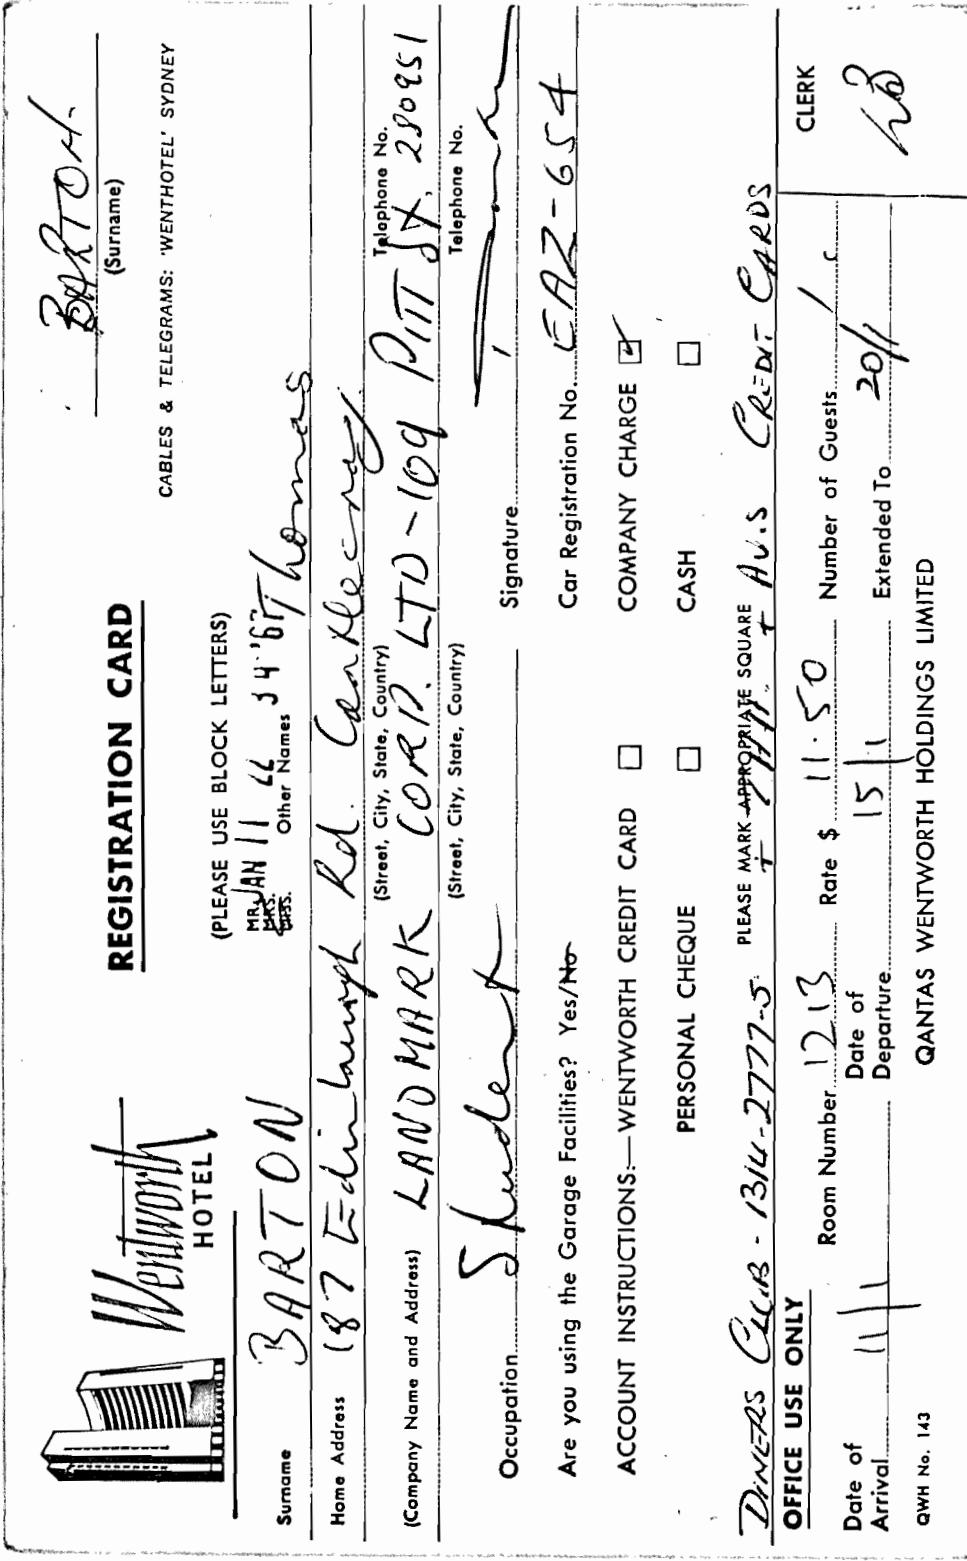 BARTON.
(Surname)
Wentworth
HOTEL
REGISTRATION CARD
CABLES & TELEGRAMS: 'WENTHOTEL' SYDNEY
(PLEASE USE BLOCK LETTERS)
MR. JAN 11
MRS.
MISS.
Surname BARTON Other Names Thomas
Home Address 187 Edinburgh Rd. Castlecrag
(Street, City, State, Country) Telephone No.
(Company Name and Address) LANDMARK CORP. LTD - 109 PITT St. 280951
(Street, City, State, Country) Telephone No.
Occupation Student Signature
Are you using the Garage Facilities? Yes/No Car Registration No. EAZ-654
ACCOUNT INSTRUCTIONS:—WENTWORTH CREDIT CARD COMPANY CHARGE
PERSONAL CHEQUE CASH
PLEASE MARK APPROPRIATE SQUARE
DINERS CLUB - 1314-2777-5 + + AVIS CREDIT CARDS
OFFICE USE ONLY
Room Number 1213 Rate $ 11.50 Number of Guests 1
CLERK
Date of Arrival 11/1 Date of Departure 15/1 Extended To 20/1
QWH No. 143 QANTAS WENTWORTH HOLDINGS LIMITED